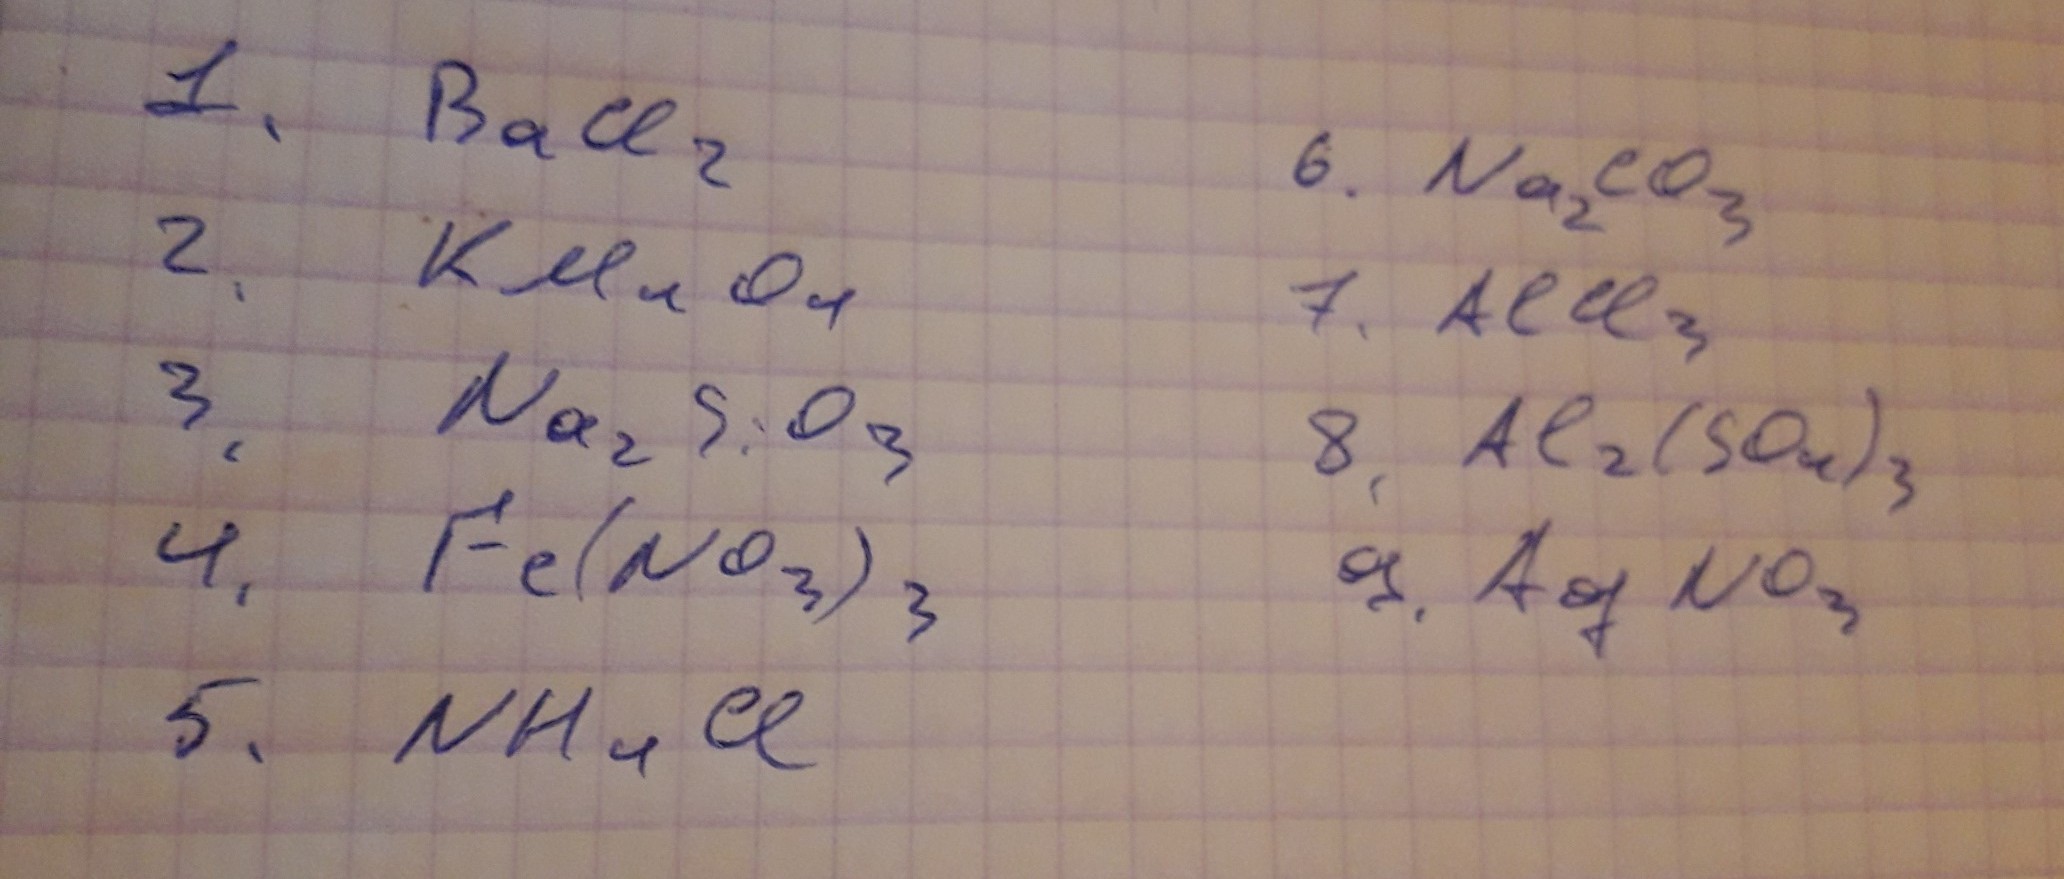 1. BaCl₂
2. KMnO₄
3. Na₂SiO₃
4. Fe(NO₃)₃
5. NH₄Cl
6. Na₂CO₃
7. AlCl₃
8. Al₂(SO₄)₃
9. AgNO₃